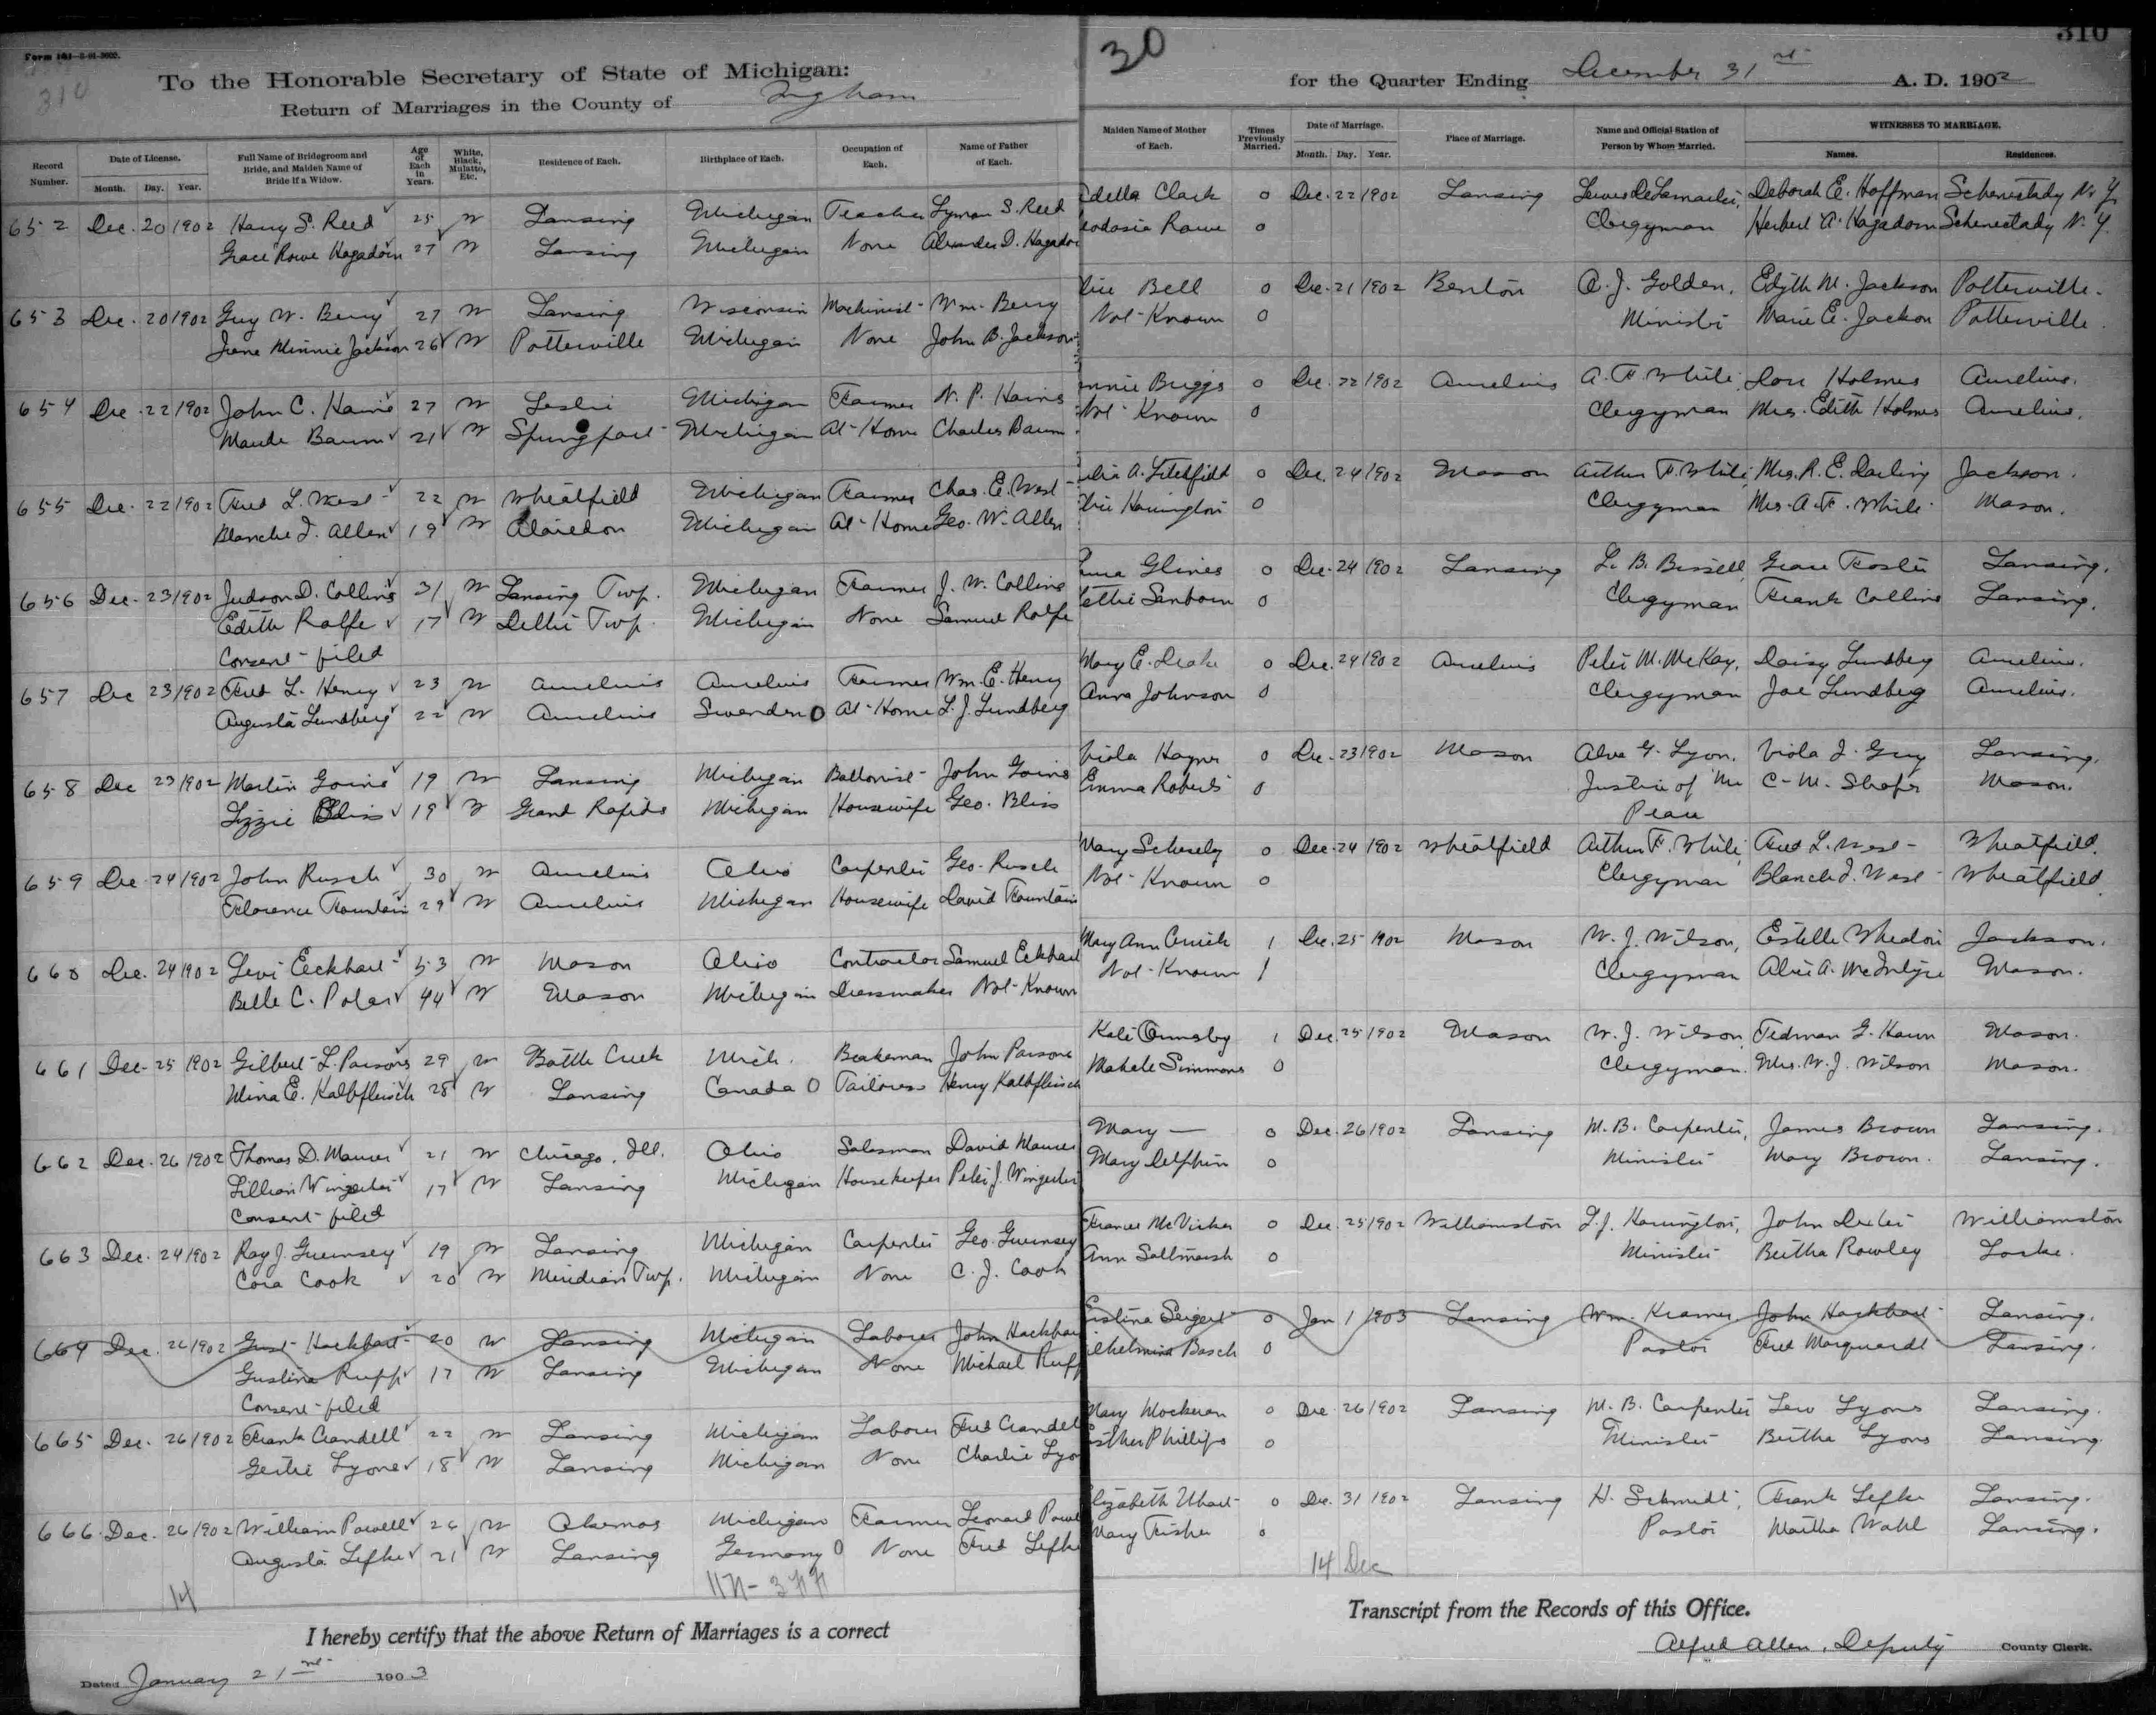 Form 101-6-01-3002.
310
To the Honorable Secretary of State of Michigan:
Return of Marriages in the County of Ingham
30
310
for the Quarter Ending December 31st A. D. 1902
Record Number. Date of License. Month. Day. Year. Full Name of Bridegroom and Bride, and Maiden Name of Bride if a Widow. Age of Each in Years. White, Black, Mulatto, Etc. Residence of Each. Birthplace of Each. Occupation of Each. Name of Father of Each. Maiden Name of Mother of Each. Times Previously Married. Date of Marriage. Month. Day. Year. Place of Marriage. Name and Official Station of Person by Whom Married. WITNESSES TO MARRIAGE. Names. Residences.
652 Dec. 20 1902 Harry S. Reed 25 W Lansing Michigan Teacher Lyman S. Reed Edella Clark 0 Dec. 22 1902 Lansing Deborah E. Hoffman Schenectady N. Y.
Grace Rowe Hagadorn 27 W Lansing Michigan None Alexander D. Hagador eodosia Rowe 0 Clergyman Herbert A. Hagadorn Schenectady N. Y.
653 Dec. 20 1902 Guy W. Berry 27 W Lansing Wisconsin Machinist Wm. Berry lice Bell 0 Dec. 21 1902 Benton A. J. Golden, Edith M. Jackson Potterville.
Irene Minnie Jackson 26 W Potterville Michigan None John B. Jackson Not Known 0 Minister Marie E. Jackson Potterville.
654 Dec. 22 1902 John C. Hains 27 W Leslie Michigan Farmer N. P. Hains ennie Briggs 0 Dec. 22 1902 Aurelius A. F. White, Dorr Holmes Aurelius.
Maude Baum 21 W Springport Michigan At Home Charles Baum Not Known 0 Clergyman Mrs. Edith Holmes Aurelius.
655 Dec. 22 1902 Fred L. West 22 W Wheatfield Michigan Farmer Chas. E. West elia A. Litchfield 0 Dec. 24 1902 Mason Arthur F. White, Mrs. R. E. Darling Jackson.
Blanche I. Allen 19 W Alaiedon Michigan At Home Geo. W. Allen Harrington 0 Clergyman Mrs. A. F. White Mason.
656 Dec. 23 1902 Judson D. Collins 31 W Lansing Twp. Michigan Farmer J. W. Collins Glines 0 Dec. 24 1902 Lansing L. B. Bissell, Grace Foster Lansing.
Edith Rolfe 17 W Delhi Twp. Michigan None Samuel Rolfe ettie Sanborn 0 Clergyman Frank Collins Lansing.
Consent filed
657 Dec 23 1902 Fred L. Henry 23 W Aurelius Aurelius Farmer Wm. E. Henry Mary E. Drake 0 Dec. 24 1902 Aurelius Peter M. McKay, Daisy Lundberg Aurelius.
Augusta Lundberg 22 W Aurelius Swenden 0 At Home L. J. Lundberg Anna Johnson 0 Clergyman Joe Lundberg Aurelius.
658 Dec 23 1902 Martin Goins 19 W Lansing Michigan John Goins Viola Hayner 0 Dec. 23 1902 Mason Alva G. Lyon, Viola I. Guy Lansing.
Lizzie Bliss 19 W Grand Rapids Michigan Housewife Geo. Bliss Emma Roberts 0 Justice of the C. M. Shafer Mason.
Peace
659 Dec. 24 1902 John Rusch 30 W Aurelius Ohio Carpenter Geo. Rusch Mary Scherely 0 Dec. 24 1902 Wheatfield Arthur F. White, Fred L. West Wheatfield.
Florence Fountain 29 W Aurelius Michigan Housewife David Fountain Not Known 0 Clergyman Blanche I. West Wheatfield.
660 Dec. 24 1902 Levi Eckhart 53 W Mason Ohio Contractor Samuel Eckhart Mary Ann 1 Dec. 25 1902 Mason W. J. Wilson, Estelle Whedon Jackson.
Belle C. Polar 44 W Mason Michigan Dressmaker Not Known Not Known 1 Clergyman Alice A. McIntyre Mason.
661 Dec. 25 1902 Gilbert L. Parsons 29 W Battle Creek Mich. Brakeman John Parsons Kate Ormsby 1 Dec. 25 1902 Mason W. J. Wilson, Tedman G. Mason.
Mina E. Kalbfleisch 28 W Lansing Canada 0 Tailoress Henry Kalbfleisch Mahale Simmons 0 Clergyman. Mrs. W. J. Wilson Mason.
662 Dec. 26 1902 Thomas D. Maurer 21 W Chicago, Ill. Ohio Salesman David Maurer Mary — 0 Dec. 26 1902 Lansing M. B. Carpenter, James Brown Lansing.
Lillian Wingerter 17 W Lansing Michigan Housekeeper Peter J. Wingerter Mary Delphin 0 Minister Mary Brown. Lansing.
Consent filed
663 Dec. 24 1902 Ray J. Guernsey 19 W Lansing Michigan Carpenter Geo. Guernsey Frances McVicker 0 Dec. 25 1902 Williamston Harrington, John Dexter Williamston
Cora Cook 20 W Meridian Twp. Michigan None C. J. Cook Ann Saltmarsh 0 Minister Bertha Rowley Locke.
664 Dec. 26 1902 Gust Hackbart 20 W Lansing Michigan Laborer John Hackbar Seigert 0 Jan 1 1903 Lansing Wm. Kramer John Hackbart Lansing.
Gustina Rupp 17 W Lansing Michigan None Michael Rupp ilhelmina Basch 0 Pastor Fred Marquardt Lansing.
Consent filed
665 Dec. 26 1902 Frank Crandell 22 W Lansing Michigan Laborer Fred Crandel Mary Mockeran 0 Dec. 26 1902 Lansing M. B. Carpenter Lew Lyons Lansing.
Gertie Lyons 18 W Lansing Michigan None Charlie Lyo sther Phillips 0 Minister Bertha Lyons Lansing.
666 Dec. 26 1902 William Powell 26 W Okemos Michigan Farmer Leonard Powe lizabeth 0 Dec. 31 1902 Lansing H. Schmidt, Frank Lefke Lansing.
Augusta Lefke 21 W Lansing Germany 0 None Fred Lefke Mary Fisher 0 Pastor Martha Wahl Lansing.
14
14 Dec
I hereby certify that the above Return of Marriages is a correct Transcript from the Records of this Office.
Dated January 21st 1903
Alfred Allen, Deputy County Clerk.